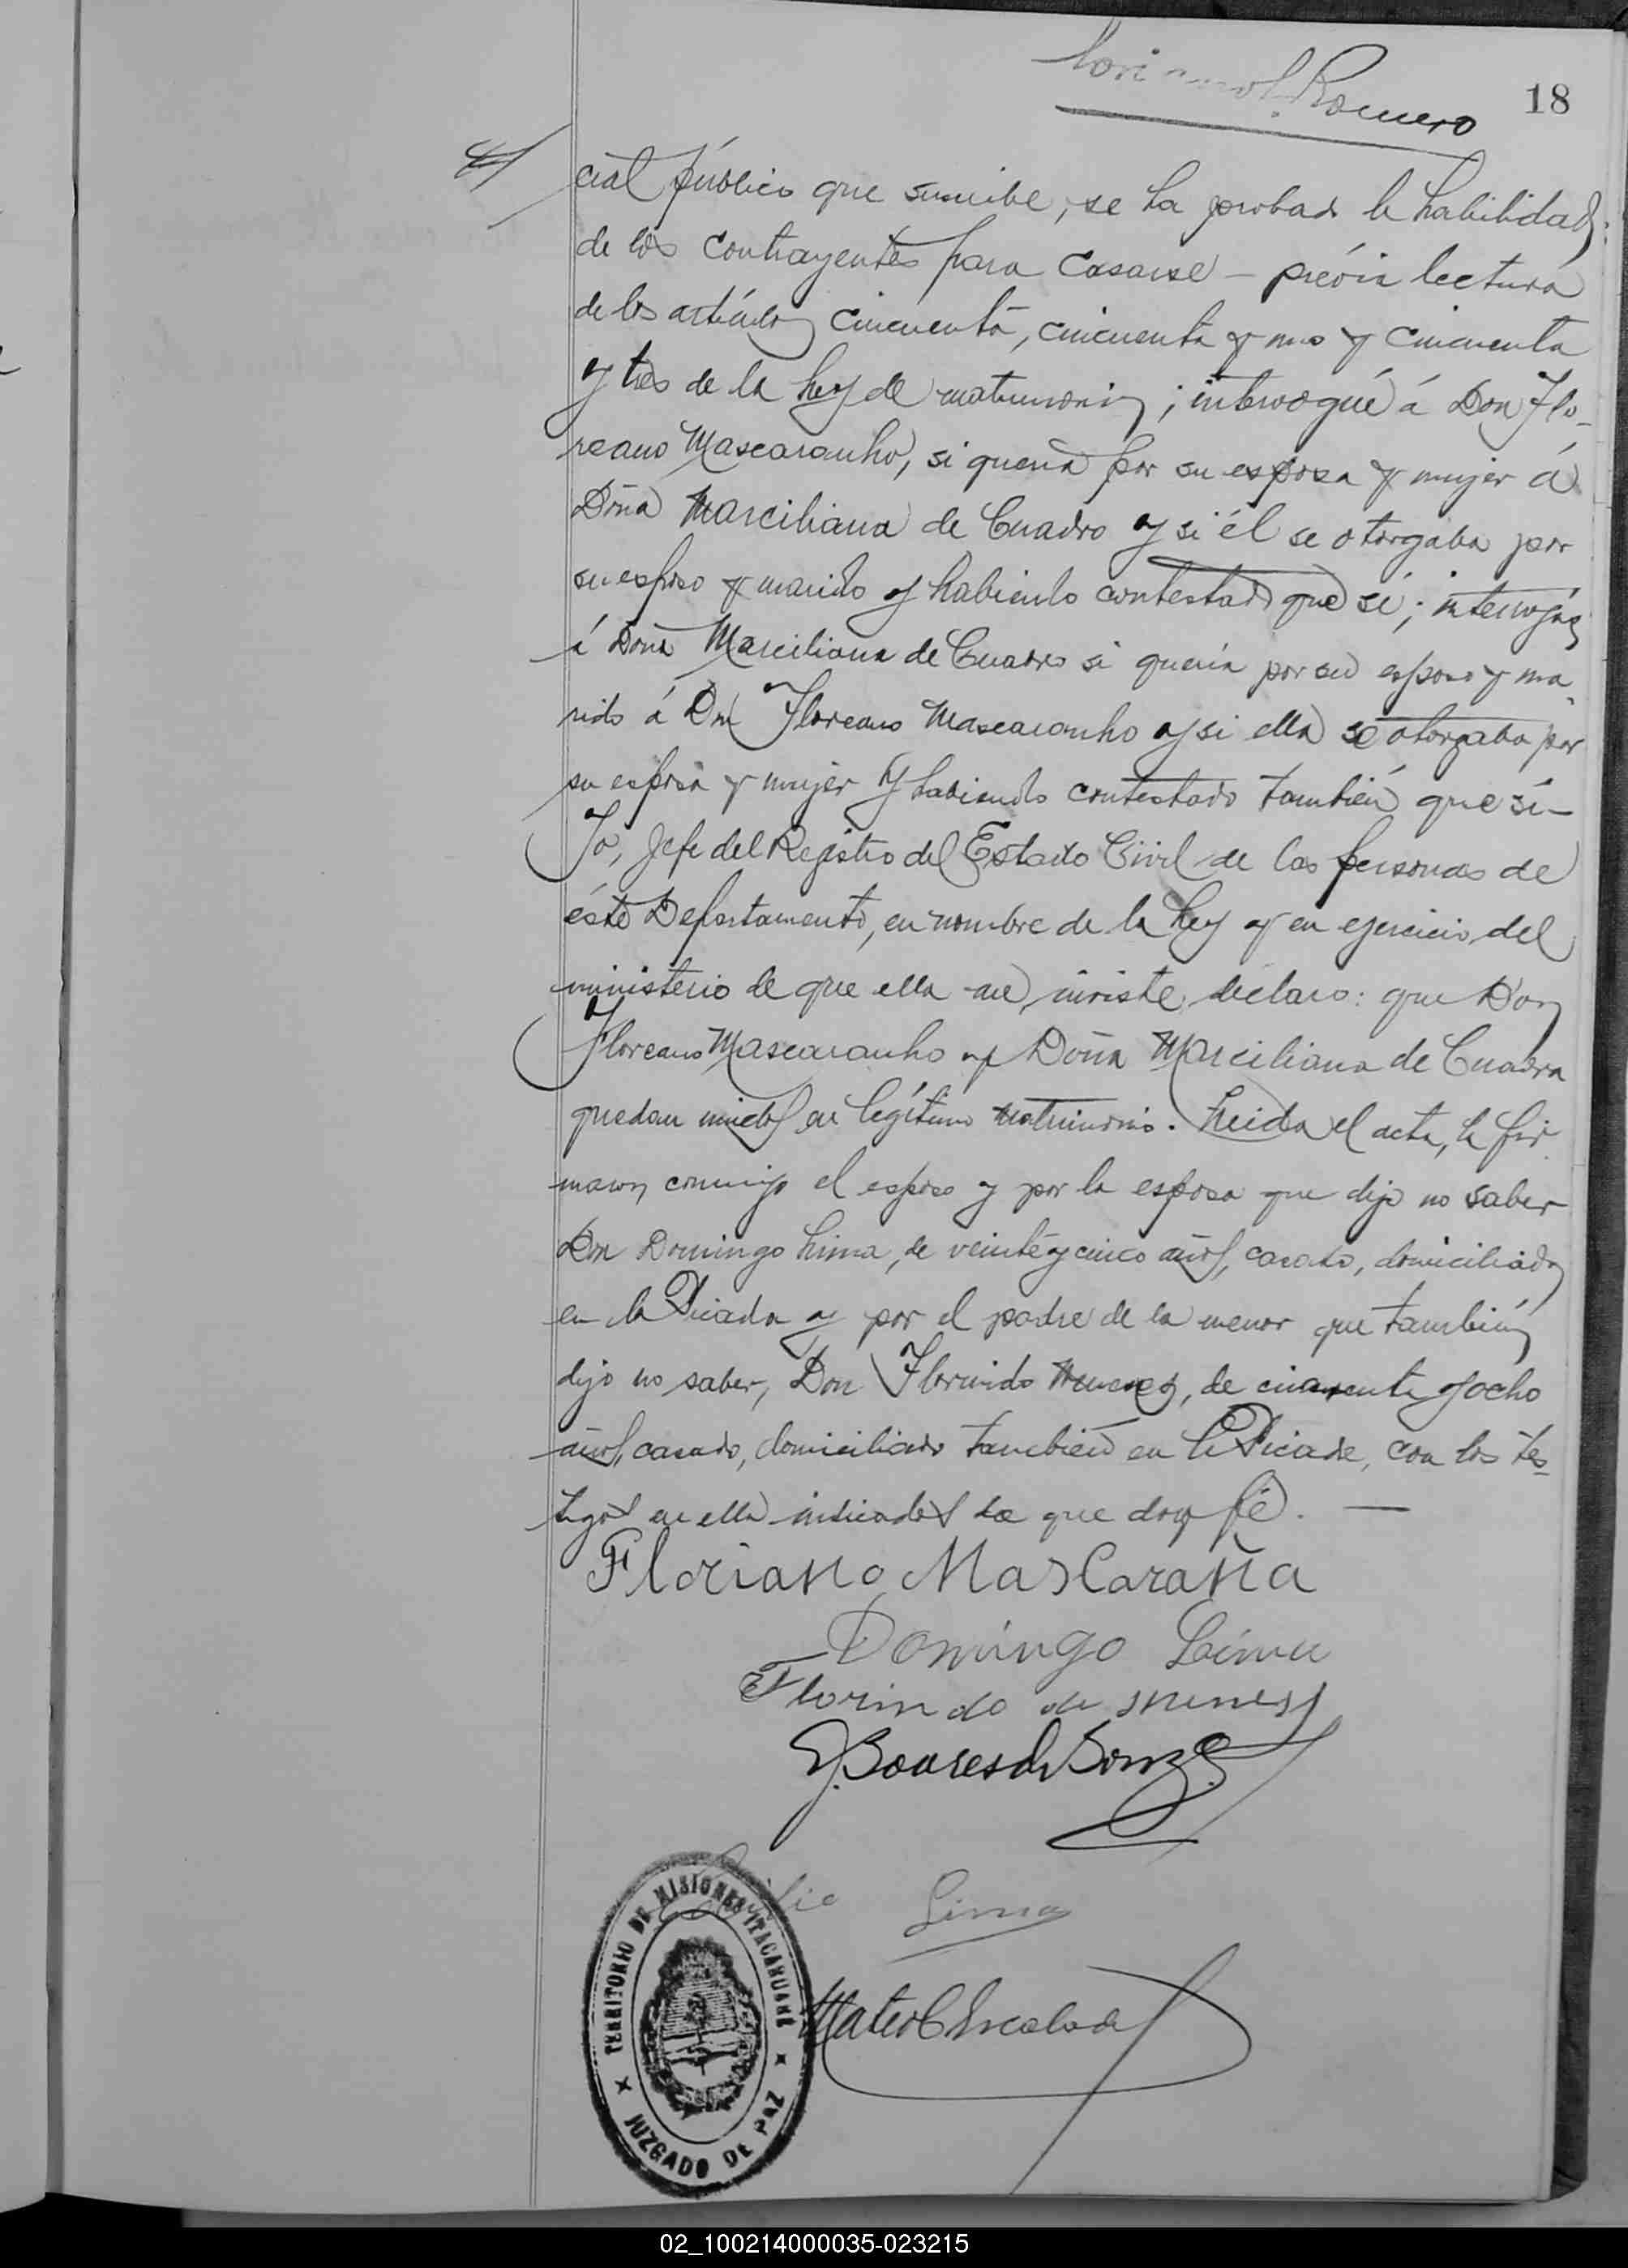 Romero
18
cial público que suscribe, se ha probado la habilidad
de los contrayentes para casarse — prévia lectura
de los artículos cincuenta, cincuenta y uno y cincuenta
y tres de la Ley de matrimonio; interrogué á Don Flo-
reano Mascaranho, si queria por su esposa y mujer á
Doña Marciliana de Cuadro y si él se otorgaba por
su esposo y marido y habiendo contestado que sí; interrogué
á Doña Marciliana de Cuadro si queria por su esposo y ma-
rido á Don Floreano Mascaranho y si ella se otorgaba por
su esposa y mujer y habiendo contestado también que sí —
Yo, Jefe del Registro del Estado Civil de las personas de
éste Departamento, en nombre de la Ley y en ejercicio del
ministerio de que ella me inviste, declaro: que Don
Floreano Mascaranho y Doña Marciliana de Cuadra
quedan unidos en legítimo matrimonio. Leida el acta, la fir-
maron conmigo el esposo y por la esposa que dijo no saber
Don Domingo Lima, de veinte y cinco años, casado, domiciliado
en la Picada y por el padre de la menor que también
dijo no saber, Don Florindo Meneses, de cuarenta y ocho
años, casado, domiciliado también en la Picada, con los tes-
tigos en ella indicados de que doy fé. —
Floriano MasCaraña
Domingo Lima
Florindo de Meneses
J. Soares de Souza
Lima
Mateo C. Escalada
TERRITORIO DE MISIONES ITACARUARÉ
JUZGADO DE PAZ
02_100214000035-023215